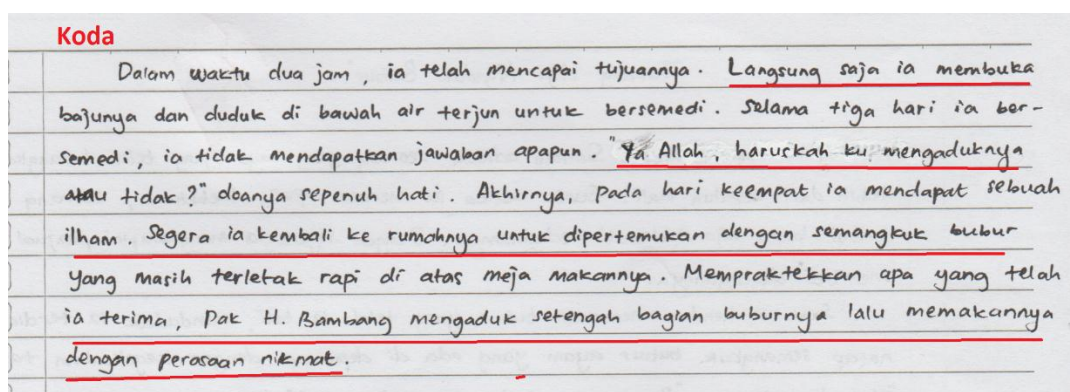 Koda
Dalam waktu dua jam, ia telah mencapai tujuannya. Langsung saja ia membuka
bajunya dan duduk di bawah air terjun untuk bersemedi. Selama tiga hari ia ber-
semedi, ia tidak mendapatkan jawaban apapun. "Ya Allah, haruskah ku mengaduknya
atau tidak?" doanya sepenuh hati. Akhirnya, pada hari keempat ia mendapat sebuah
ilham Segera ia kembali ke rumahnya untuk dipertemukan dengan semangkuk bubur
yang masih terletak rapi di atas meja makannya. Mempraktekkan apa yang telah
ia terima, Pak H. Bambang mengaduk setengah bagian buburnya lalu memakannya
dengan perasaan nikmat.